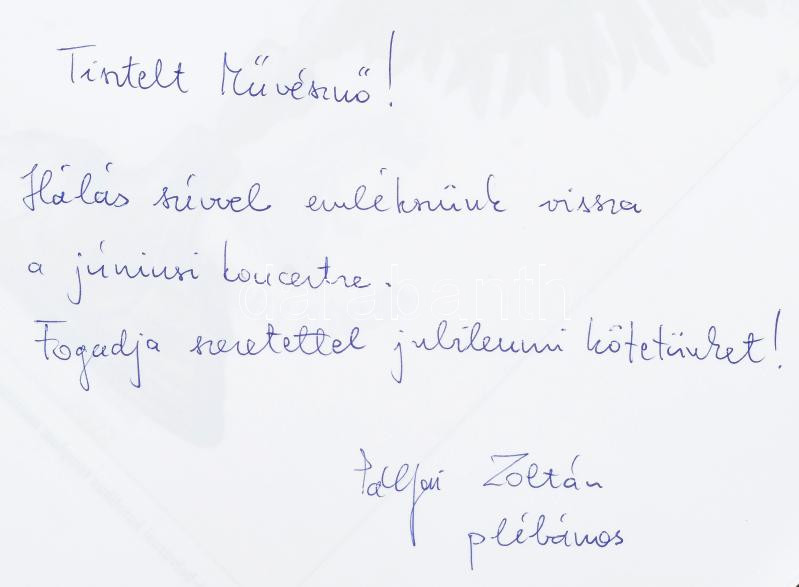 Tisztelt Művésznő!
Hálás szívvel emlékszünk vissza
a júniusi koncertre.
darabanth
Fogadja szeretettel jubileumi kötetünket!
Pálfai Zoltán
plébános